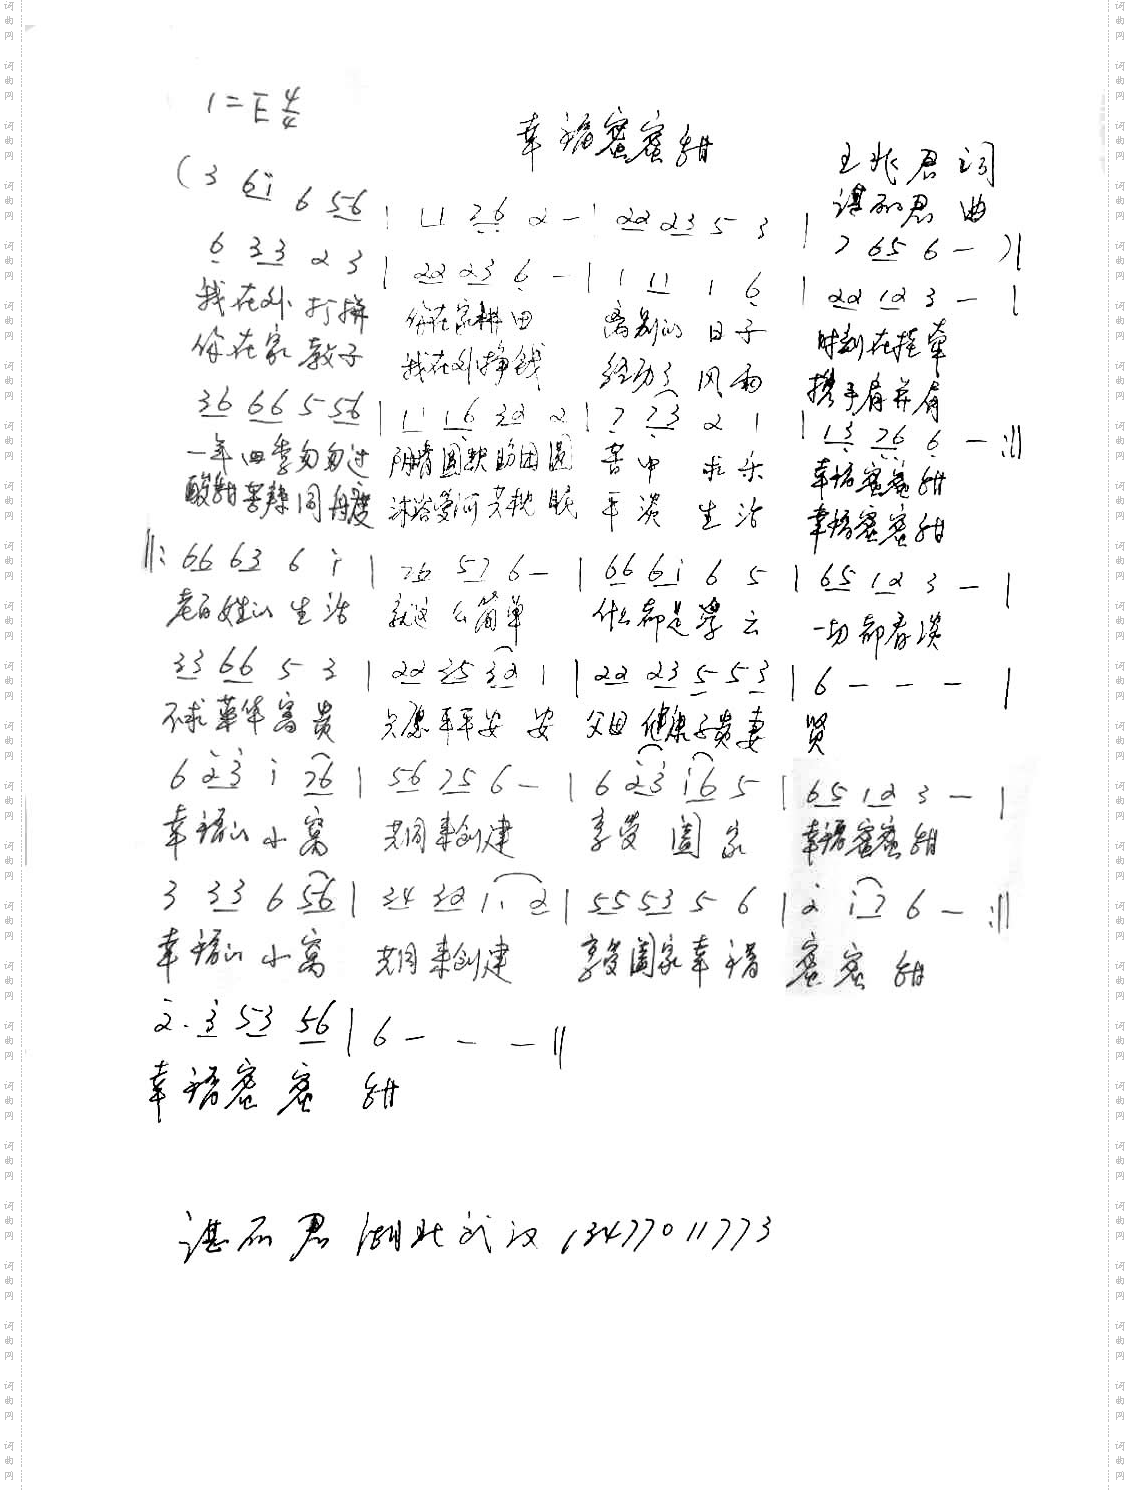 1=E 4/4
幸福蜜蜜甜
王兆君 词
谌丽君 曲
(3 6i 6 56 | 11 76 2 - | 22 23 5 3 | 7 65 6 - )|
6 33 2 3 | 22 23 6 - | 1 11 1 6 | 22 12 3 - |
我在外打拼 你在家耕田 离别的日子 时刻在挂牵
你在家教子 我在外挣钱 经历了风雨 携手肩并肩
36 66 5 56 | 11 16 32 2 | 7 723 2 1 | 13 76 6 - :||
一年四季匆匆过 阴晴圆缺盼团圆 苦中求乐 幸福蜜蜜甜
酸甜苦辣同舟度 沐浴爱河共枕眠 平淡生活 幸福蜜蜜甜
||: 66 63 6 i | 76 57 6 - | 66 6i 6 5 | 65 12 3 - |
老百姓的生活 就这么简单 什么都是浮云 一切都看淡
33 66 5 3 | 22 35 32 1 | 22 23 5 53 | 6 - - - |
不求荣华富贵 只愿平平安安 父母健康子贵妻贤
6 23 i 76 | 56 75 6 - | 6 23 i6 5 | 65 12 3 - |
幸福的小窝 共同来创建 享受阖家 幸福蜜蜜甜
3 33 6 56 | 34 32 1. 2 | 55 53 5 6 | 2 i7 6 - :||
幸福的小窝 共同来创建 享受阖家幸福 蜜蜜甜
2. 3 53 56 | 6 - - - ||
幸福蜜蜜甜
谌丽君 湖北武汉 13477011773
词曲网